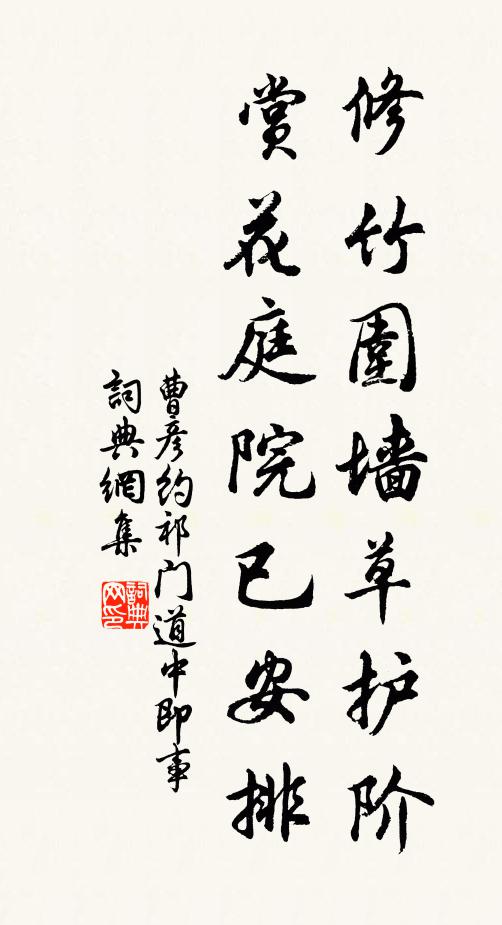 修竹圍墙草护阶
賞花庭院已安排
曹彦约祁门道中即事
詞典網集
詞典
网印